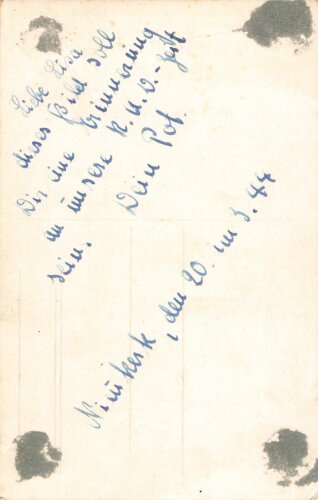 Liebe Lisa
dieses Bild soll
Dir eine Erinnerung
an unsere K.H.D.-Zeit
sein. Dein
, den 20. im 3. 44